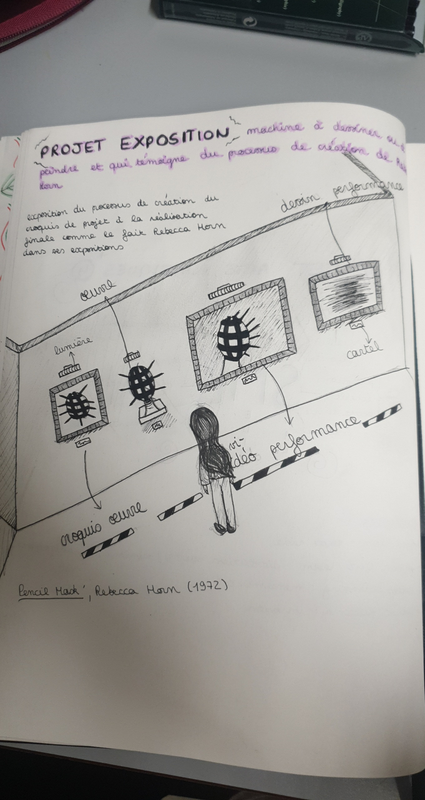 PROJET EXPOSITION machine à dessiner ou
peindre et qui témoigne du processus de création de
Horn
exposition du processus de création du
croquis de projet à la réalisation
finale comme le fait Rebecca Horn
dans ses expositions
dessin performance
œuvre
lumière
cartel
vi-
déo performance
croquis œuvre
Pencil Mask, Rebecca Horn (1972)